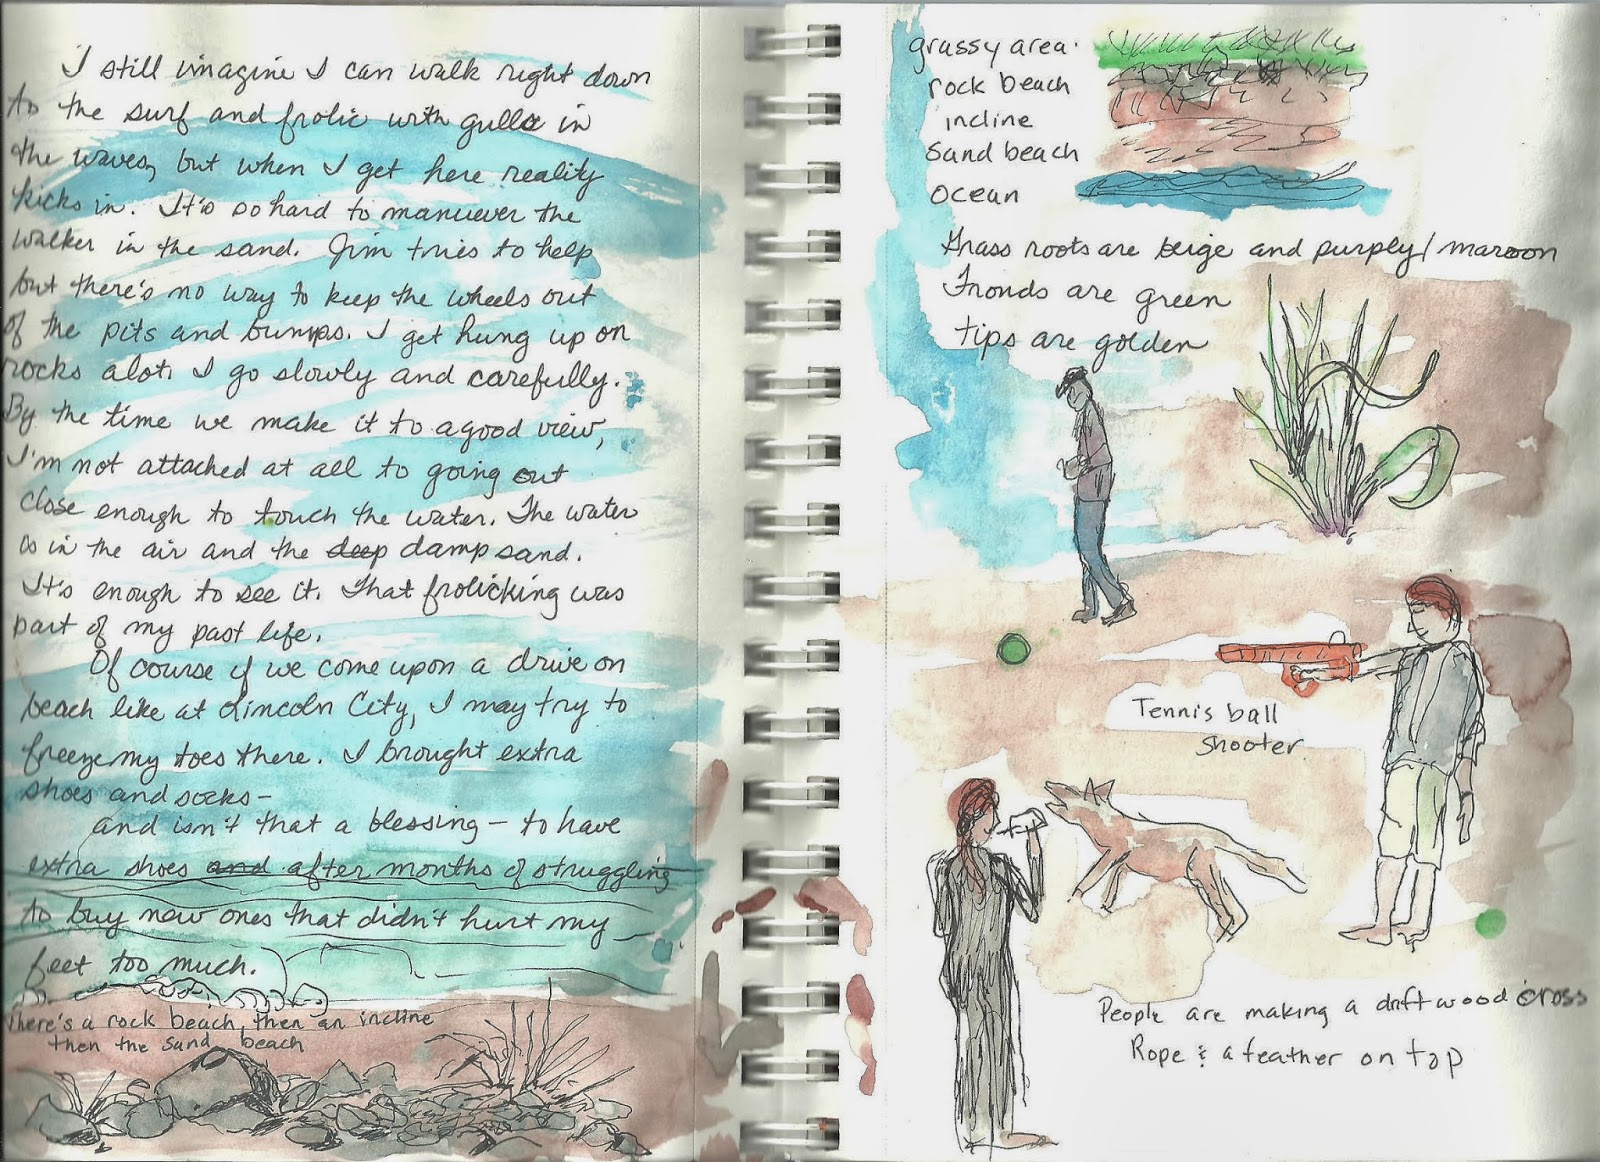 I still imagine I can walk right down
to the surf and frolic with gulls in
the waves, but when I get here reality
kicks in. It's so hard to manuever the
walker in the sand. Jim tries to help
but there's no way to keep the wheels out
of the pits and bumps. I get hung up on
rocks alot. I go slowly and carefully.
By the time we make it to a good view,
I'm not attached at all to going out
close enough to touch the water. The water
is in the air and the deep damp sand.
It's enough to see it. That frolicking was
part of my past life.
Of course if we come upon a drive on
beach like at Lincoln City, I may try to
freeze my toes there. I brought extra
shoes and socks—
and isn't that a blessing — to have
extra shoes and after months of struggling
to buy new ones that didn't hurt my
feet too much.
There's a rock beach, then an incline
then the sand beach
grassy area.
rock beach
incline
sand beach
ocean
Grass roots are beige and purply/maroon
Fronds are green
tips are golden
Tennis ball
shooter
People are making a driftwood cross
Rope & a feather on top